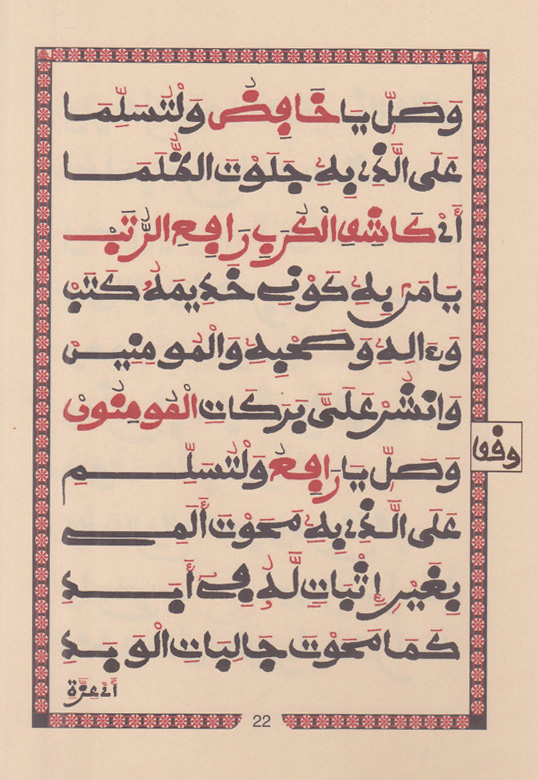 وَصَلِّ يَا خَافِضُ وَلْتُسَلِّمَا
عَلَى الَّذِي بِهِ جَلَوْتَ الظُّلَمَا
أَيْ كَاشِفِ الْكُرَبِ رَافِعِ الرُّتَبْ
يَا مَن بِهِ كَوْنِي خَدِيمَهُ كَتَبْ
وَءَالِهِ وَصَحْبِهِ وَالْمُومِنِينْ
وَانْشُرْ عَلَيَّ بَرَكَاتِ الْمُومِنُونْ
وَصَلِّ يَا رَافِعُ وَلْتُسَلِّمِ
عَلَى الَّذِي بِهِ مَحَوْتَ أَلَمِي
بِغَيْرِ إِثْبَاتٍ لَّهُ فِي أَبَدِ
كَمَا مَحَوْتَ جَالِبَاتِ الْوَبَدِ
أَيْ عِزَّةِ
22